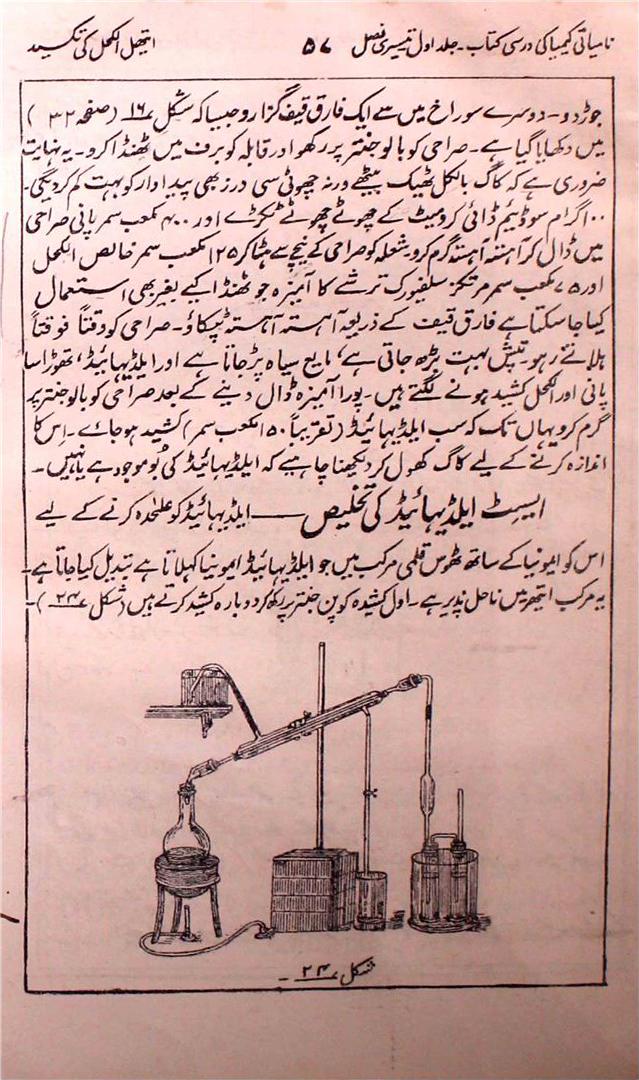 نامیاتی کیمیا کی درسی کتاب۔ جلد اول تیسری فصل ۵۷ ایتھل الکحل کی تکسید
جوڑ دو۔ دوسرے سوراخ میں سے ایک فارق قیف گزارو جیسا کہ شکل ۱۶ (صفحہ ۳۲)
میں دکھایا گیا ہے۔ صراحی کو بالو جنتر پر رکھو اور قابلہ کو برف میں ٹھنڈا کرو۔ یہ نہایت
ضروری ہے کہ کاگ بالکل ٹھیک بیٹھے ورنہ چھوٹی سی درز بھی پیداوار کو بہت کم کردیگی۔
۱۰۰ گرام سوڈیئم ڈائی کرومیٹ کے چھوٹے چھوٹے ٹکڑے اور ۲۰۰ مکعب سمر پانی صراحی
میں ڈال کر آہستہ آہستہ گرم کرو شعلہ کو صراحی کے نیچے سے ہٹا کر ۱۲۵ مکعب سمر خالص الکحل
اور ۷۵ مکعب سمر مرتکز سلفیورک ترشے کا آمیزہ جو ٹھنڈا کیے بغیر بھی استعمال
کیا جاسکتا ہے فارق قیف کے ذریعہ آہستہ آہستہ ٹپکاؤ۔ صراحی کو وقتاً فوقتاً
ہلاتے رہو۔ تپش بہت بڑھ جاتی ہے، مایع سیاہ پڑ جاتا ہے اور ایلڈیہائیڈ، تھوڑا سا
پانی اور الکحل کشید ہونے لگتے ہیں۔ پورا آمیزہ ڈال دینے کے بعد صراحی کو بالو جنتر پر
گرم کرو یہاں تک کہ سب ایلڈیہائیڈ (تقریباً ۱۵۰ مکعب سمر) کشید ہوجائے۔ اِس کا
اندازہ کرنے کے لیے کاگ کھول کر دیکھنا چاہیے کہ ایلڈیہائیڈ کی بُو موجود ہے یا نہیں۔
ایسٹ ایلڈیہائیڈ کی تخلیص — ایلڈیہائیڈ کو علٰحدہ کرنے کے لیے
اس کو ایمونیا کے ساتھ ٹھوس قلمی مرکب میں جو ایلڈیہائیڈ ایمونیا کہلاتا ہے تبدیل کیا جاتا ہے۔
یہ مرکب ایتھر میں ناحل پذیر ہے۔ اول کشیدہ کو پن جنتر پر رکھ کر دوبارہ کشید کرتے ہیں (شکل ۲۴)۔
شکل ۲۴۔